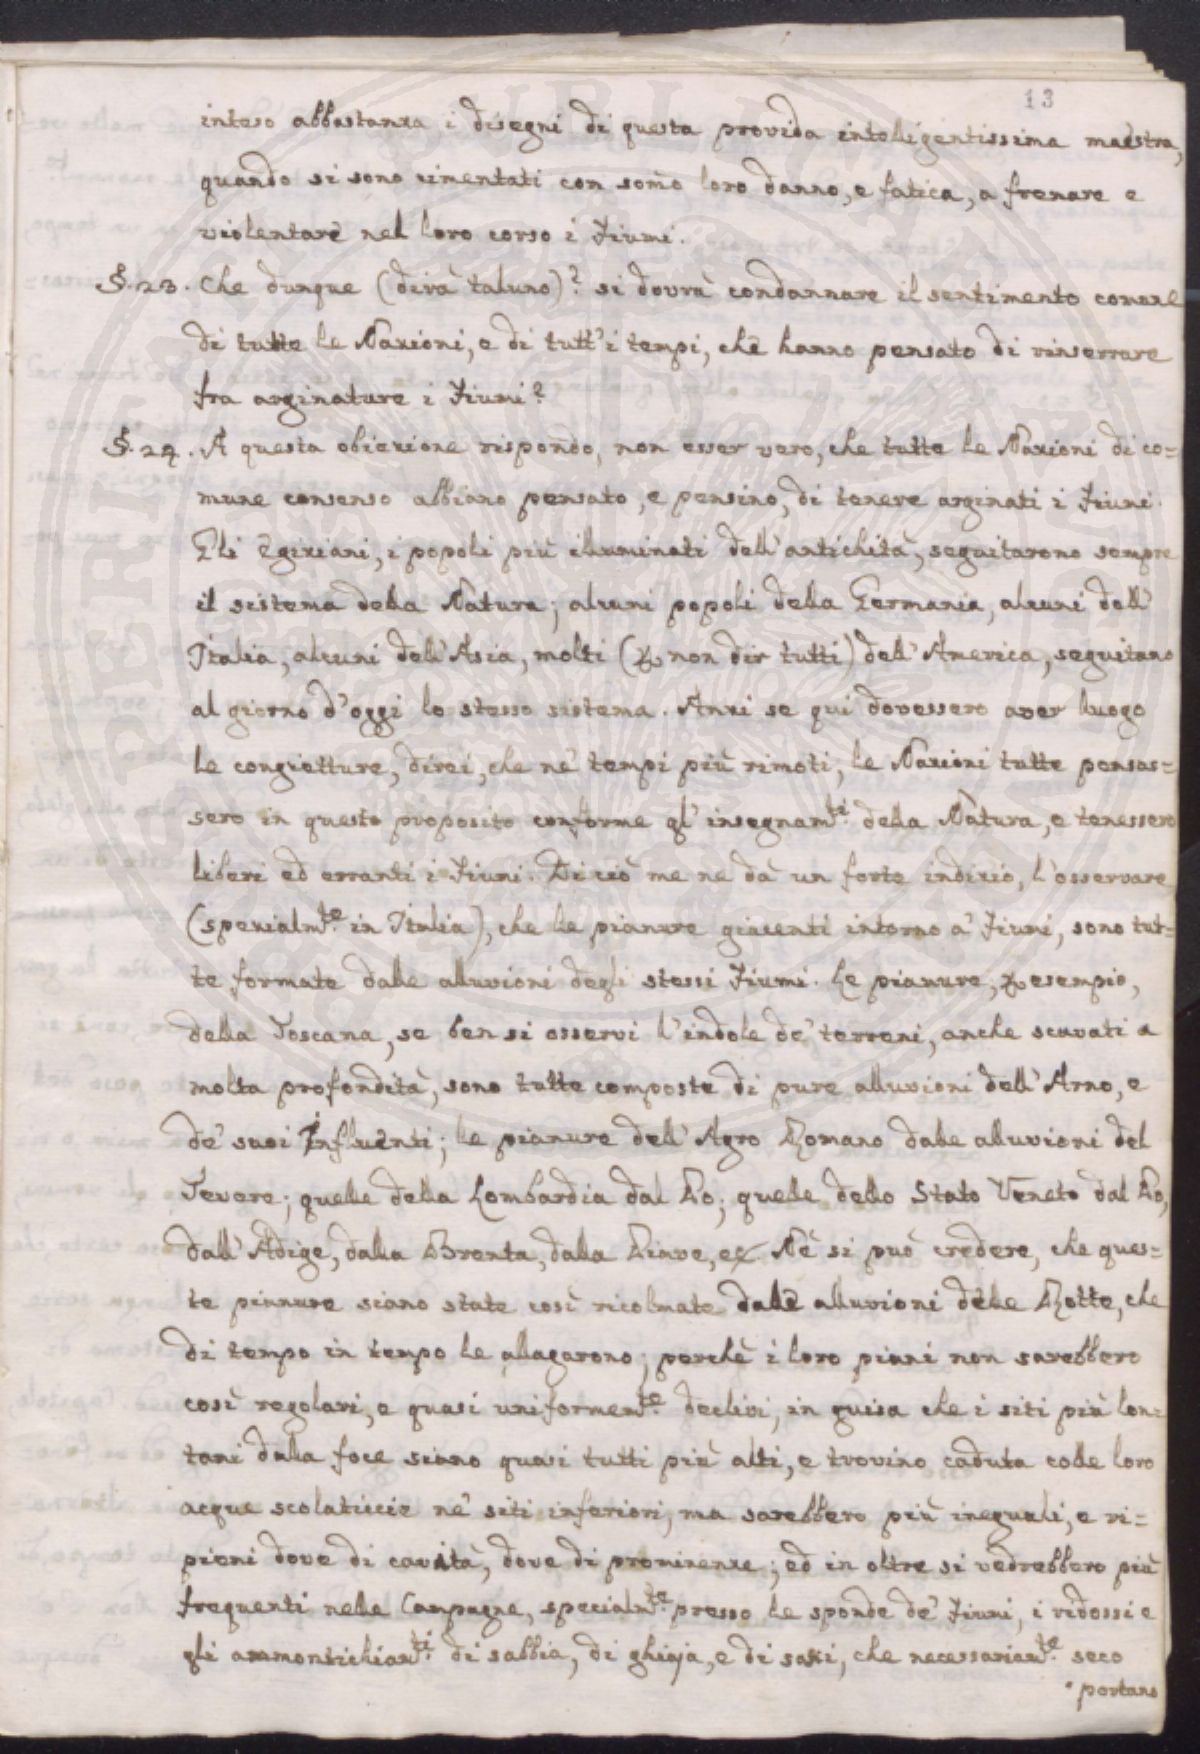 13
inteso abbastanza i disegni di questa provida intelligentissima maestra,
quando si sono cimentati con somo loro danno, e fatica, a frenare e
violentare nel loro corso i Fiumi.
§. 23. Che dunque (dirà taluno)? si dovrà condannare il sentimento comune
di tutte le Nazioni, e di tutt'i tempi, che hanno pensato di rinserrare
fra arginature i Fiumi?
§. 24. A questa obiezione rispondo, non esser vero, che tutte le Nazioni di co=
mune consenso abbiano pensato, e pensino, di tenere arginati i Fiumi.
Gli Egiziani, i popoli più illuminati dell'antichità, seguitarono sempre
il sistema della Natura; alcuni popoli della Germania, alcuni dell'
Italia, alcuni dell'Asia, molti (p non dir tutti) dell'America, seguitano
al giorno d'oggi lo stesso sistema. Anzi se qui dovessero aver luogo
le congietture, direi, che ne' tempi più rimoti, le Nazioni tutte pensas=
sero in questo proposito conforme gl'insegnam.ti della Natura, e tenessero
liberi ed erranti i Fiumi. Di ciò me ne dà un forte indizio, l'osservare
(spezialm.te in Italia), che le pianure giacenti intorno a' Fiumi, sono tut=
te formate dalle alluvioni degli stessi Fiumi. Le pianure, p esempio,
della Toscana, se ben si osservi l'indole de' terreni, anche scavati a
molta profondità, sono tutte composte di pure alluvioni dell'Arno, e
de' suoi Influenti; le pianure dell'Agro Romano dalle alluvioni del
Tevere; quelle della Lombardia dal Po; quelle dello Stato Veneto dal Po,
dall'Adige, dalla Brenta, dalla Piave, ec. Nè si può credere, che ques=
te pianure siano state così ricolmate dalle alluvioni delle Rotte, che
di tempo in tempo le allagarono; perchè i loro piani non sarebbero
così regolari, e quasi uniformem.te declivi, in guisa che i siti più lon=
tani dalla foce siano quasi tutti più alti, e trovino caduta colle loro
acque scolaticcie ne' siti inferiori; ma sarebbero più ineguali, e ri=
pieni dove di cavità, dove di prominenze; ed in oltre si vedrebbero più
frequenti nelle Campagne, specialm.te presso le sponde de' Fiumi, i ridossi e
gli ammonticchiam.ti di sabbia, di ghiaja, e di sassi, che necessariam.te seco
portano